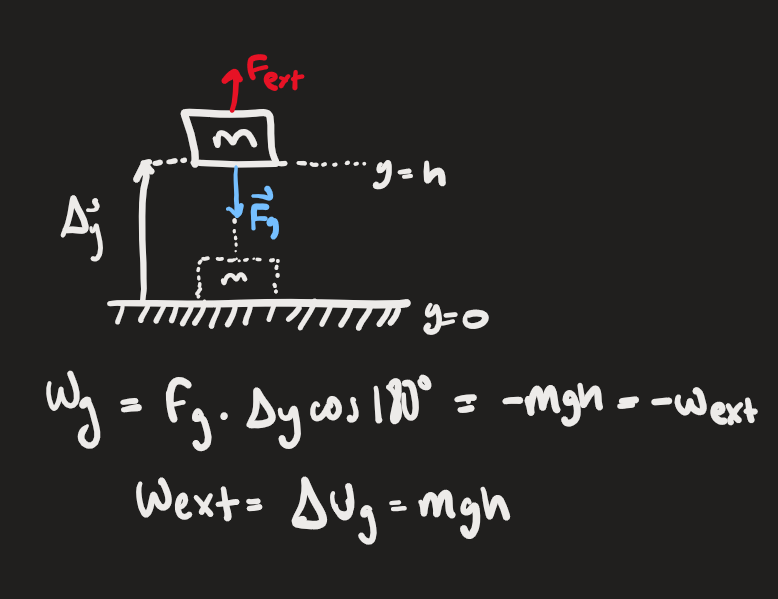 F_ext
m
y=h
Δy⃗
F⃗_g
m
y=0
W_g = F_g . Δy cos 180° = -mgh = -W_ext
W_ext = ΔU_g = mgh